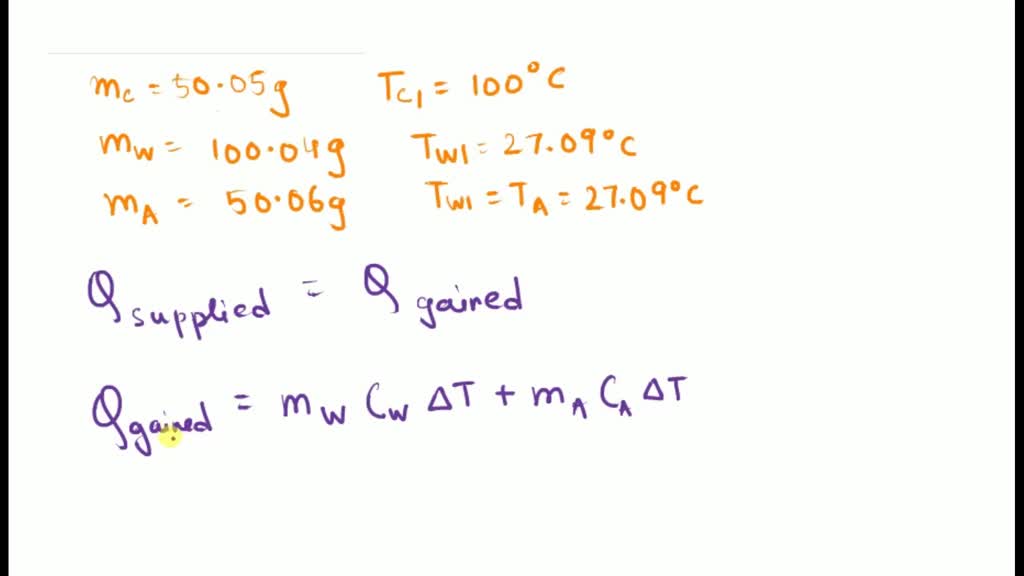 m_C = 50.05g T_C1 = 100°C
m_W = 100.04g T_W1 = 27.09°C
m_A = 50.06g T_W1 = T_A = 27.09°C
Q_supplied = Q_gained
Q_gained = m_W C_W ΔT + m_A C_A ΔT